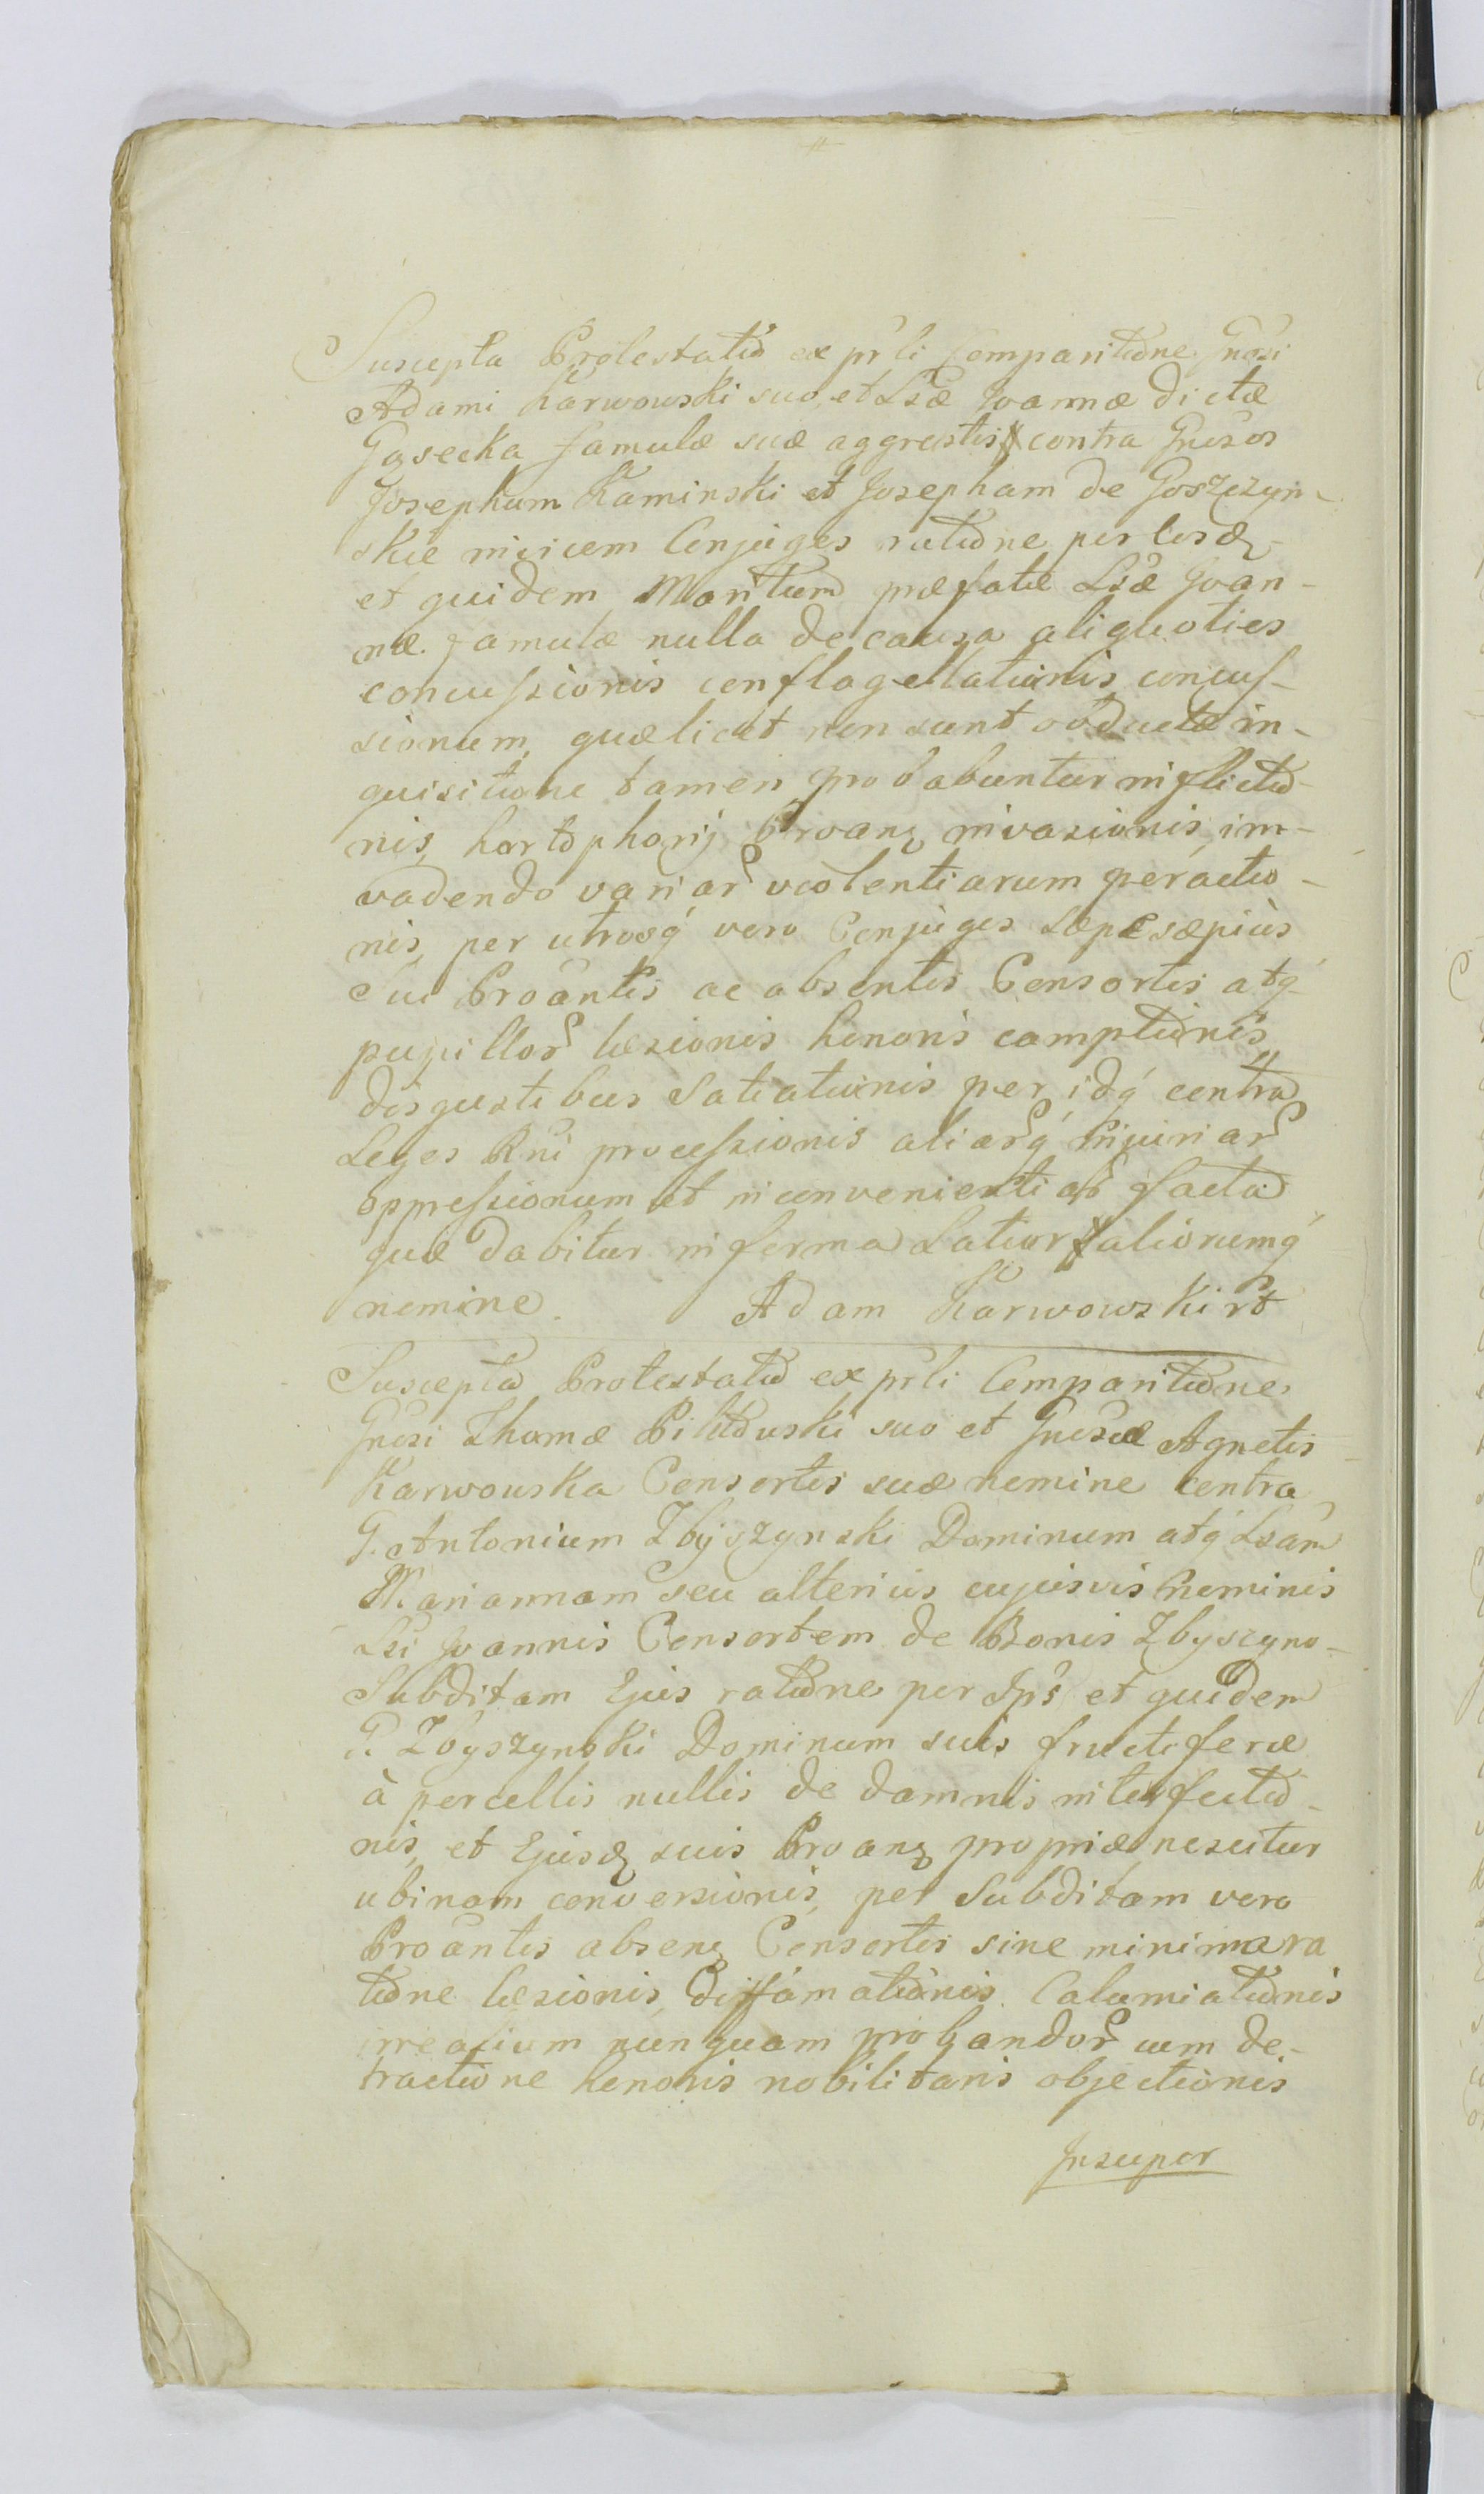 Suscepta Protestatio ex prli Comparitione Gnosi
Adami Karwowski suo, et Lsæ Joannæ dictæ
Gąsecka famulæ suæ aggrestis contra Gnosos
Josephum Kaminski et Josepham de Goszczyn-
skie invicem Conjuges ratione per eosdẽ
et quidem Maritum præfatæ Lsæ Joan-
næ famulæ nulla de causa aliquoties
concussionis conflagellationis, concus-
sionum, quæ licet non sunt obductæ in-
quisitione tamen probabuntur inflictio-
nis, hortophorij Proanẽ invasionis, im-
vadendo variar violentiarum peractio-
nis, per utrosq vero Conjuges sæpe sæpius
Sui Proantis ac absentis Consortis atq
pupillor læsionis honoris camptionis
disgustibus Satiationis per idq contra
Leges Rni processionis aliarq Injuriar
oppressionum et inconvenientiar facta
quæ dabitur in forma Latiori aliorumq
nomine. Adam Karwowski
Suscepta Protestatio ex prli Comparitione
Gnosi Thomæ suo et Gnosæ Agnetis
Karwowska Consortis suæ nomine contra
G. Antonium Zbyszynski Dominum atq Lsam
Mariannam seu alterius cujusvis nominis
Lsi Joannis Consortem de Bonis Zbyszyno
Subditam Ejus ratione per Ips et quidem
G. Zbyszynski Dominum suis fructiferæ
à porcellis nullis de damnis interfectio-
nis, et Ejusdẽ suis Proanẽ propriæ nescitur
ubinam conversionis, per Subditam vero
Proantis absenẽ Consortis sine minima ra
tione læsionis, diffamationis Calumiationis
irrealium nunquam probandor cum de-
tractione honoris nobilitaris objectionis
Insuper